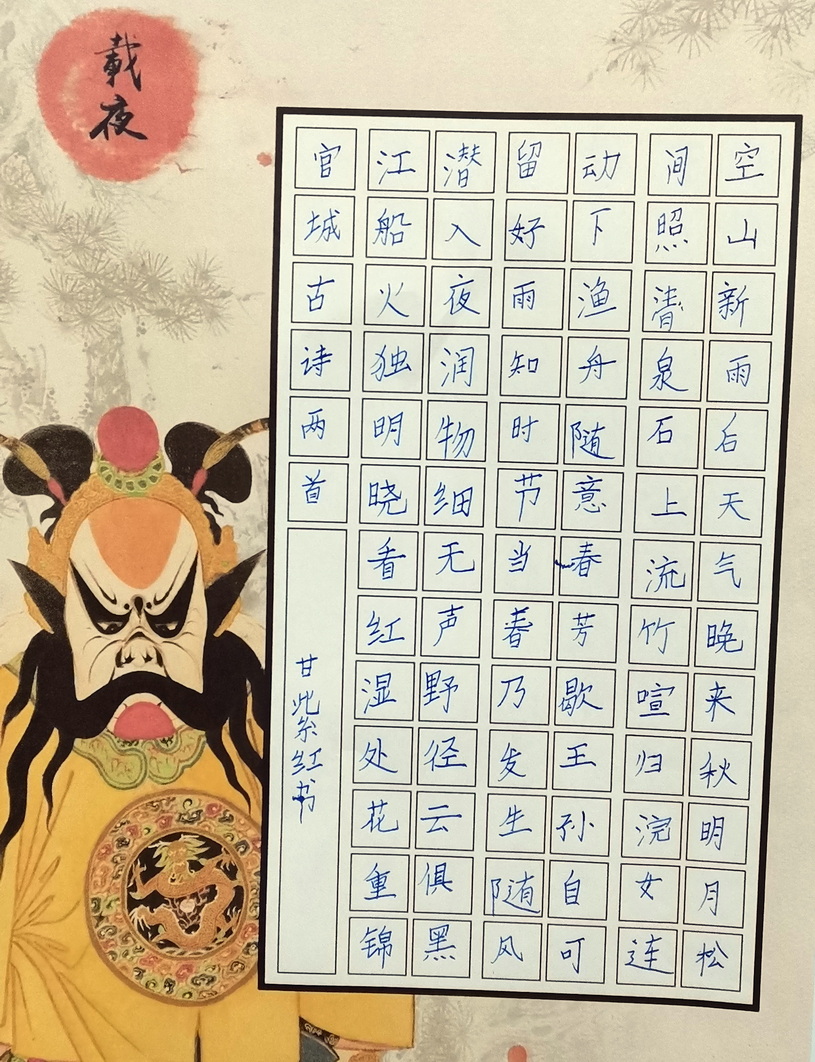 載夜
空山新雨后天气晚来秋明月松
间照清泉石上流竹喧归浣女连
动下渔舟随意春芳歇王孙自可
留好雨知时节当春乃发生随风
潜入夜润物细无声野径云俱黑
江船火独明晓看红湿处花重锦
官城古诗两首
甘紫红书